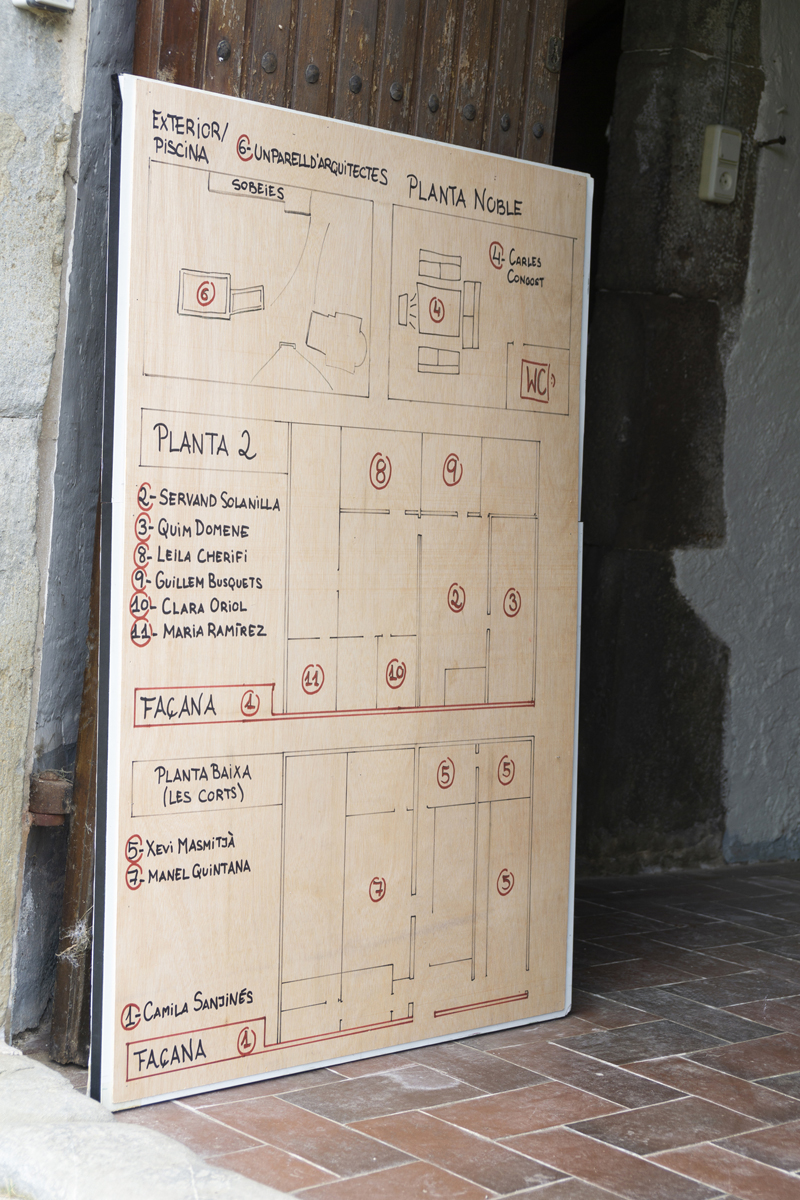 EXTERIOR/
PISCINA
6- UNPARELLD'ARQUITECTES
SOBEIES
6
PLANTA NOBLE
4- CARLES
CONGOST
4
WC
PLANTA 2
2- SERVAND SOLANILLA
3- QUIM DOMENE
8- LEILA CHERIFI
9- GUILLEM BUSQUETS
10- CLARA ORIOL
11- MARIA RAMÍREZ
8
9
2
3
11
10
FAÇANA 1
PLANTA BAIXA
(LES CORTS)
5- XEVI MASMITJÀ
7- MANEL QUINTANA
5
5
7
5
1- CAMILA SANJINÉS
FAÇANA 1